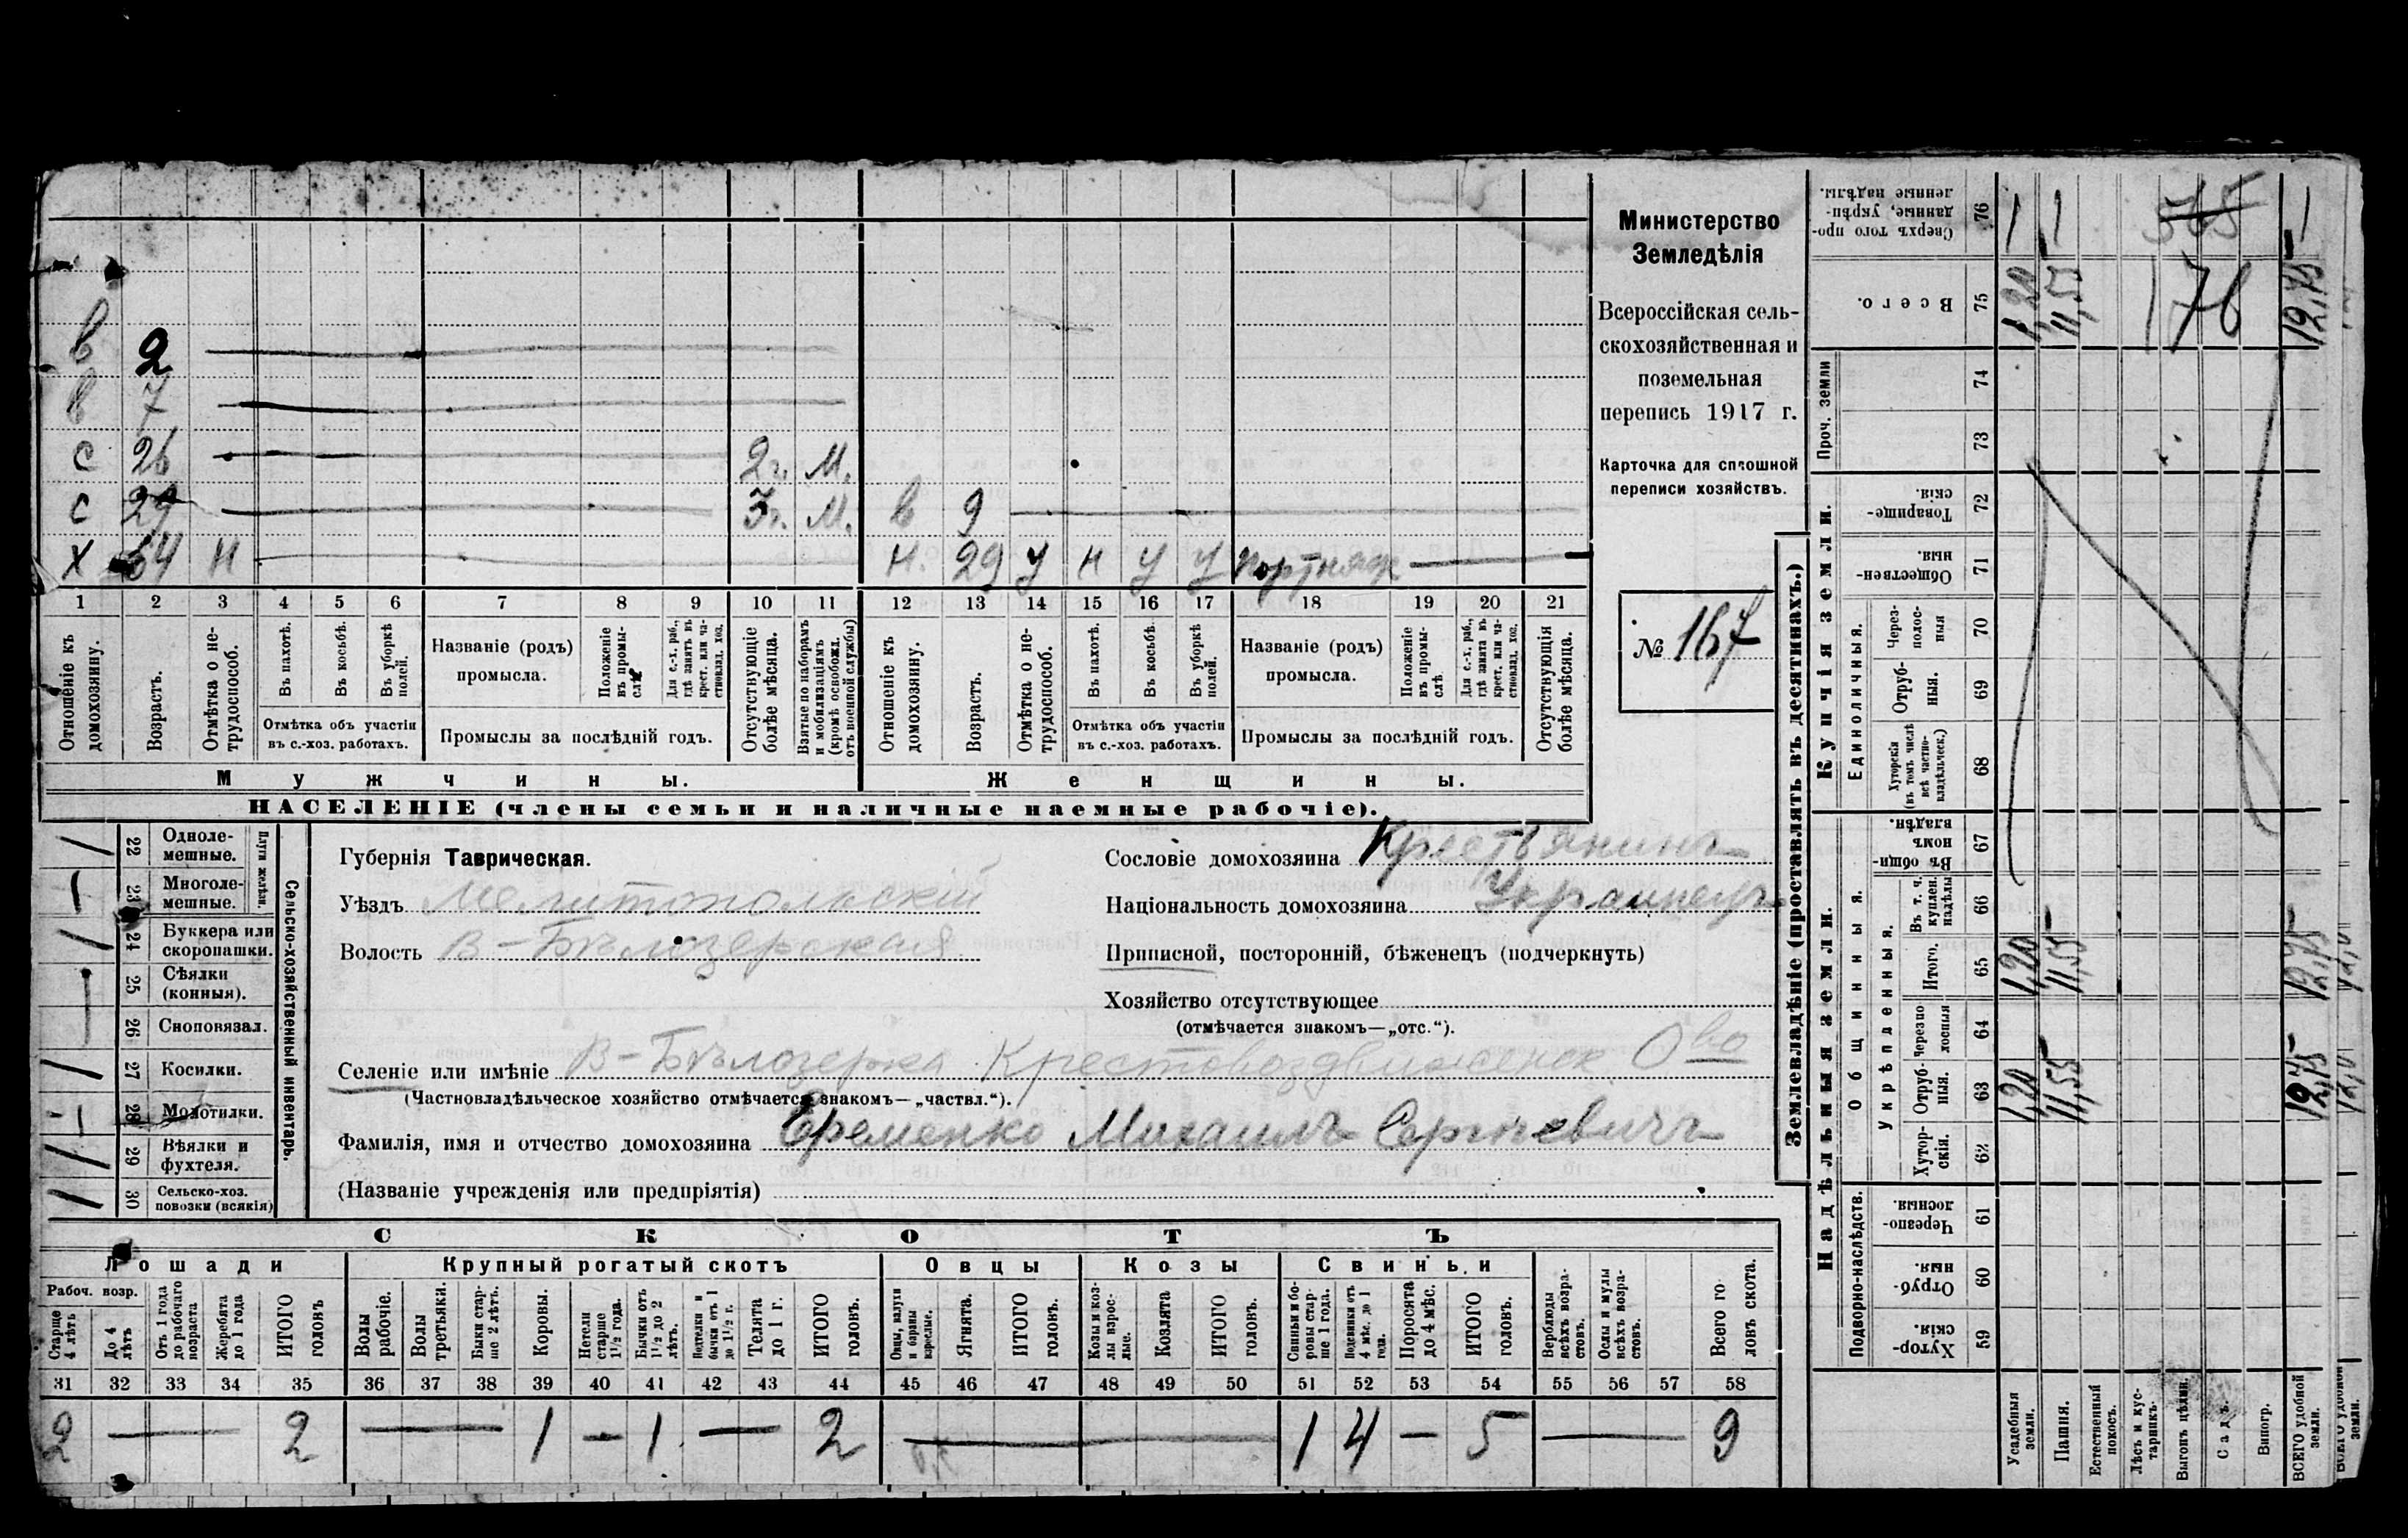 в 2
в 7
с 26 2г. М.
с 29 3г. М. в 9
Х 64 Н Н. 29 У Н У У Портняж
1 2 3 4 5 6 7 8 9 10 11 12 13 14 15 16 17 18 19 20 21
Отношеніе къ домохозяину.
Возрастъ.
Отмѣтка о нетрудоспособ.
Въ пахотѣ.
Въ косьбѣ.
Въ уборкѣ полей.
Отмѣтка объ участіи
въ с.-хоз. работахъ.
Названіе (родъ)
промысла.
Положеніе въ промыслѣ.
Для с.-х. раб., гдѣ занятъ въ крест. или частновлад. хоз.
Промыслы за послѣдній годъ.
Отсутствующіе болѣе мѣсяца.
Взятые по наборамъ и мобилизаціямъ (кромѣ освобожд. отъ военной службы)
Отношеніе къ домохозяину.
Возрастъ.
Отмѣтка о нетрудоспособ.
Въ пахотѣ.
Въ косьбѣ.
Въ уборкѣ полей.
Отмѣтка объ участіи
въ с.-хоз. работахъ.
Названіе (родъ)
промысла.
Положеніе въ промыслѣ.
Для с.-х. раб., гдѣ занята въ крест. или частновлад. хоз.
Промыслы за послѣдній годъ.
Отсутствующія болѣе мѣсяца.
Мужчины. Женщины.
НАСЕЛЕНІЕ (члены семьи и наличные наемные рабочіе).
Министерство
Земледѣлія
Всероссійская сель-
скохозяйственная и
поземельная
перепись 1917 г.
Карточка для сплошной
переписи хозяйствъ.
№ 167
Сельско-хозяйственный инвентарь.
Плуги желѣзн.
1 22 Одноле-
мешные.
1 23 Многоле-
мешные.
1 24 Буккера или
скоропашки.
25 Сѣялки
(конныя).
26 Сноповязал.
1 27 Косилки.
28 Молотилки.
1 29 Вѣялки и
фухтеля.
1 30 Сельско-хоз.
повозки (всякія)
Губернія Таврическая.
Уѣздъ Мелитопольскій
Волость В-Бѣлозерская
Сословіе домохозяина Крестьянинъ
Національность домохозяина Украинецъ
Приписной, посторонній, бѣженецъ (подчеркнуть)
Хозяйство отсутствующее
(отмѣчается знакомъ—„отс.“).
Селеніе или имѣніе В-Бѣлозерка Крестовоздвиженск. Ово
(Частновладѣльческое хозяйство отмѣчается знакомъ—„частвл.“).
Фамилія, имя и отчество домохозяина Еременко Михаилъ Сергѣевичъ
(Названіе учрежденія или предпріятія)
СКОТЪ
Лошади Крупный рогатый скотъ Овцы Козы Свиньи
Рабоч. возр.
Старше 4 лѣтъ
До 4 лѣтъ
Отъ 1 года до рабочаго возраста
Жеребята до 1 года
ИТОГО головъ
Волы рабочіе.
Волы третьяки.
Быки старше 2 лѣтъ.
Коровы.
Нетели старше 1½ года.
Бычки отъ 1½ до 2 лѣтъ.
бычки отъ 1 до 1½ г.
Телята до 1 г.
ИТОГО головъ.
Овцы, валухи и бараны взрослые.
Ягнята.
ИТОГО головъ.
Козы и козлы взрослые.
Козлята
ИТОГО головъ.
Свиньи и боровы старше 1 года.
Подсвинки отъ 4 мѣс. до 1 года.
Поросята до 4 мѣс.
ИТОГО головъ.
Верблюды всѣхъ возрастовъ.
Ослы и мулы всѣхъ возрастовъ.
Всего головъ скота.
31 32 33 34 35 36 37 38 39 40 41 42 43 44 45 46 47 48 49 50 51 52 53 54 55 56 57 58
2 — 2 — 1 — 1 — 2 — 1 4 — 5 — 9
Землевладѣніе (проставлять въ десятинахъ.)
Надѣльныя земли.
Купчія земли.
Проч. земли
Подворно-наслѣдств.
Общинныя.
Укрѣпленныя.
Единоличныя.
Сверхъ того проданные, укрѣпленные надѣлы. 76
Всего. 75
74
73
Товарищескія. 72
Общественныя. 71
Черезполосныя 70
Отрубныя. 69
Хуторскія (въ томъ числѣ всѣ частновладѣльческ.) 68
Въ общинномъ владѣн. 67
Въ т. ч. куплен. надѣлы 66
Итого. 65
Черезполосныя 64
Отрубныя. 63
Хуторскія. 62
Черезполосныя. 61
Отрубныя. 60
Хуторскія 59
Усадебныя земли.
1,20 1,20 1,20
Пашня.
11,55 11,55 11,55
Естественный покосъ.
Лѣсъ и кустарникъ.
Выгонъ цѣлин.
Садъ.
Виногр.
ВСЕГО удобной земли.
12,75 12,75 12,75
565
176